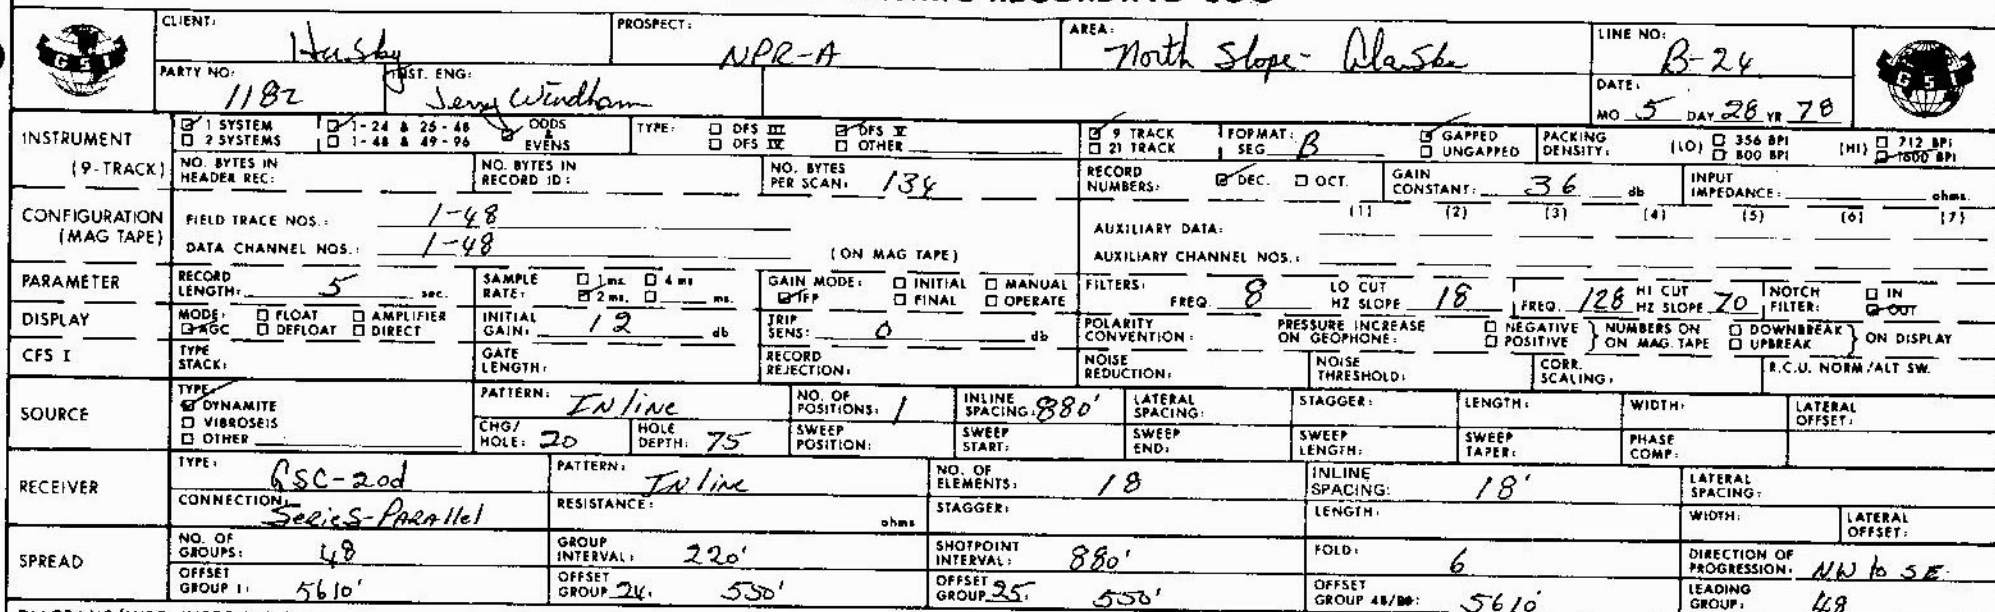 CLIENT: Husky PROSPECT: NPR-A AREA: North Slope - Alaska LINE NO: B-24
GSI GSI
PARTY NO: 1182 INST. ENG: Jerry Windham DATE: MO 5 DAY 28 YR 78
INSTRUMENT ☑ 1 SYSTEM ☑ 1-24 & 25-48 ☑ ODDS & EVENS TYPE: ☐ DFS III ☑ DFS V ☑ 9 TRACK FORMAT: SEG B ☑ GAPPED PACKING DENSITY: (LO) ☐ 356 BPI (HI) ☐ 712 BPI
☐ 2 SYSTEMS ☐ 1-48 & 49-96 ☐ DFS IV ☐ OTHER ☐ 21 TRACK ☐ UNGAPPED ☐ 800 BPI ☑ 1600 BPI
(9-TRACK) NO. BYTES IN HEADER REC: NO. BYTES IN RECORD ID: NO. BYTES PER SCAN: 134 RECORD NUMBERS: ☑ DEC. ☐ OCT. GAIN CONSTANT: 36 db INPUT IMPEDANCE: ohms.
CONFIGURATION (MAG TAPE) FIELD TRACE NOS.: 1-48 AUXILIARY DATA: (1) (2) (3) (4) (5) (6) (7)
DATA CHANNEL NOS.: 1-48 (ON MAG TAPE) AUXILIARY CHANNEL NOS.:
PARAMETER RECORD LENGTH: 5 sec. SAMPLE RATE: ☐ 1 ms. ☐ 4 ms ☑ 2 ms. ☐ ms. GAIN MODE: ☐ INITIAL ☐ MANUAL ☑ IFP ☐ FINAL ☐ OPERATE FILTERS: FREQ. 8 LO CUT HZ SLOPE 18 FREQ. 128 HI CUT HZ SLOPE 70 NOTCH FILTER: ☐ IN ☑ OUT
DISPLAY MODE: ☐ FLOAT ☐ AMPLIFIER ☑ AGC ☐ DEFLOAT ☐ DIRECT INITIAL GAIN: 12 db TRIP SENS: 0 db POLARITY CONVENTION: PRESSURE INCREASE ON GEOPHONE: ☐ NEGATIVE ☐ POSITIVE } NUMBERS ON ON MAG. TAPE ☐ DOWNBREAK ☐ UPBREAK } ON DISPLAY
CFS I TYPE STACK: GATE LENGTH: RECORD REJECTION: NOISE REDUCTION: NOISE THRESHOLD: CORR. SCALING: R.C.U. NORM/ALT SW.
SOURCE TYPE: ☑ DYNAMITE ☐ VIBROSEIS ☐ OTHER PATTERN: INline NO. OF POSITIONS: 1 INLINE SPACING: 880' LATERAL SPACING: STAGGER: LENGTH: WIDTH: LATERAL OFFSET:
CHG/HOLE: 20 HOLE DEPTH: 75 SWEEP POSITION: SWEEP START: SWEEP END: SWEEP LENGTH: SWEEP TAPER: PHASE COMP:
RECEIVER TYPE: GSC-20d PATTERN: INline NO. OF ELEMENTS: 18 INLINE SPACING: 18' LATERAL SPACING:
CONNECTION: SERIES-PARAllel RESISTANCE: ohms STAGGER: LENGTH: WIDTH: LATERAL OFFSET:
SPREAD NO. OF GROUPS: 48 GROUP INTERVAL: 220' SHOTPOINT INTERVAL: 880' FOLD: 6 DIRECTION OF PROGRESSION: NW to SE.
OFFSET GROUP 1: 5610' OFFSET GROUP 24: 550' OFFSET GROUP 25: 550' OFFSET GROUP 48/96: 5610' LEADING GROUP: 48